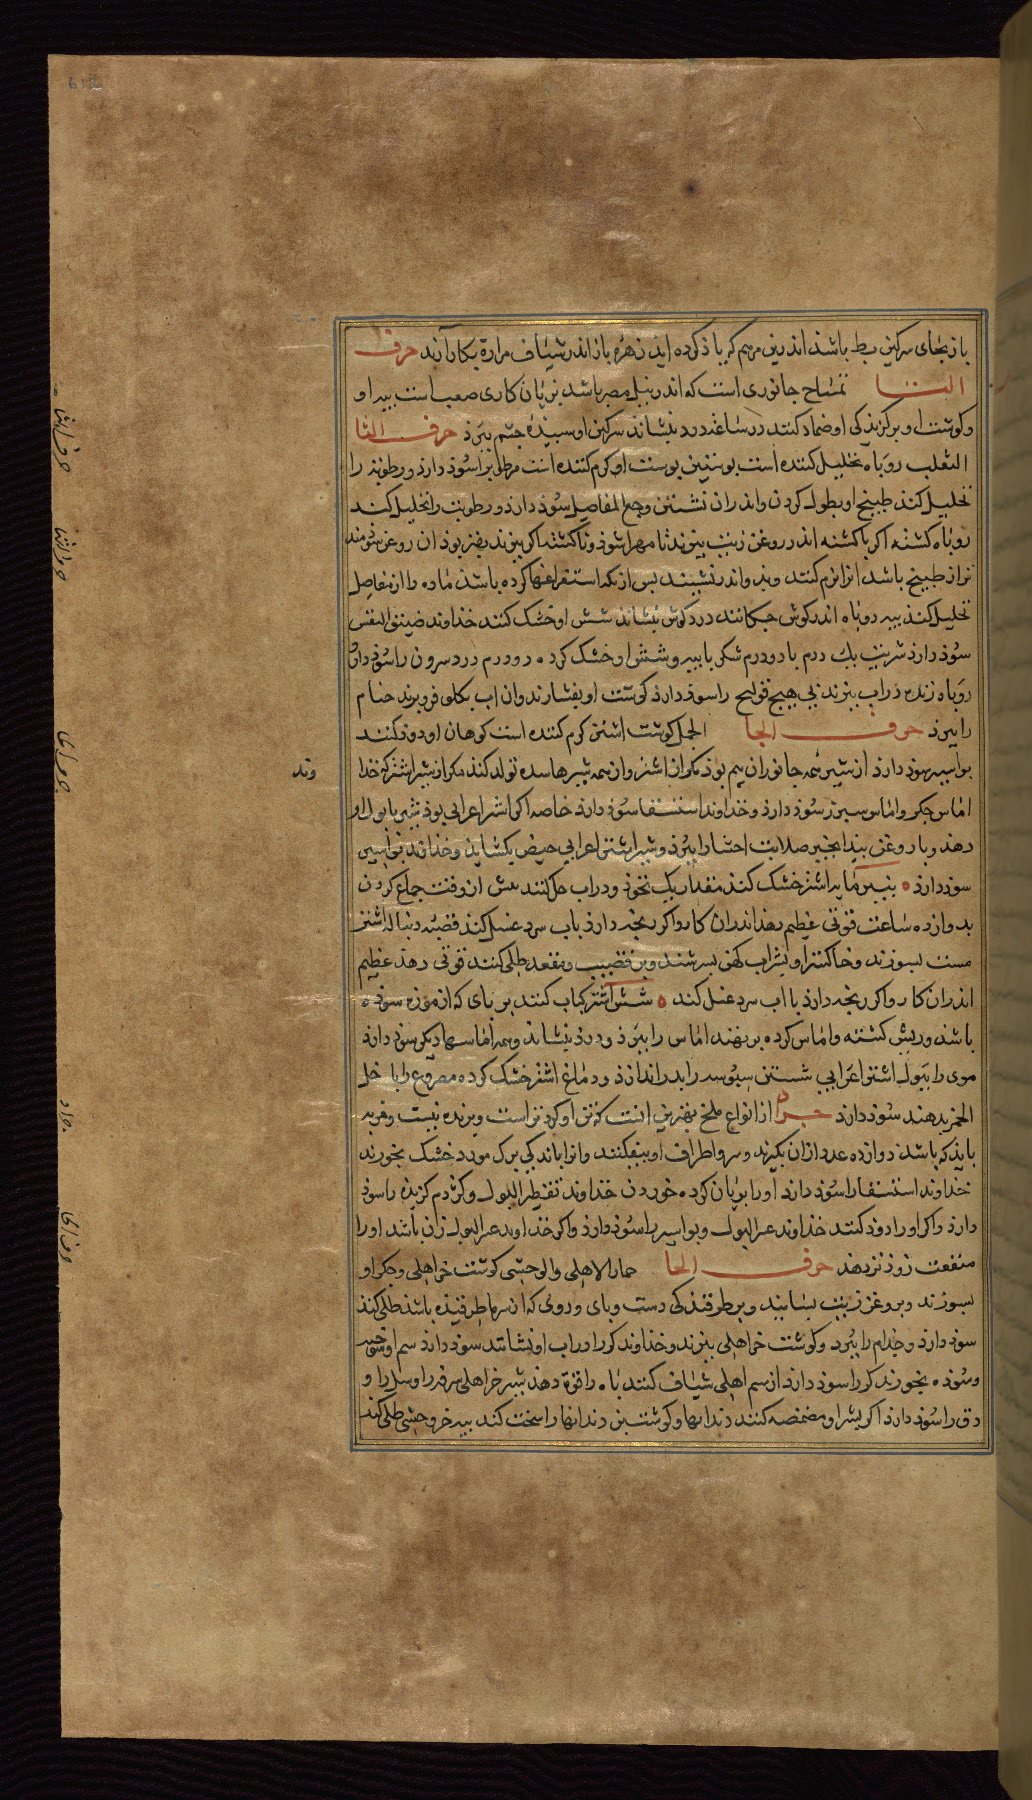 باز بجای سرکین بط باشد اندرین مرهم که یاذ کرده اید زهره باز اندر شیاف مرارة بکار آرند حرف
التا تمساح جانوری است که اندر نیل مصر باشد زیان کاری صعب است پیه او
و کوشت او بر کزیدکی او ضماد کنند در ساعة درد بنشاند سرکین او سبیذه چشم ببرذ حرف الثا
الثعلب روباه تحلیل کننده است پوستین پوست او کرم کننده است مرطوبرا سوذ دارذ و رطوبة را
تحلیل کند طبیخ او بطول کردن و اندران نشستن وجع المفاصل سوذ دارذ و رطوبت را تحلیل کند
روباه کشته اکر یا کشته اندر روغن زیت بپزند تا مهرا شوذ و ناکشته اکر بپزند بهتر بوذ ان روغن سوذمند
تر از طبیخ باشد انرا نرم کنند و اندر نشینند پس از انکه استفراغها کرده باشد ماده را از مفاصل
تحلیل کند پیه روباه اندر کوش چکانند درد کوش بنشاند شش او خشک کنند خداوند ضیق النفس
سوذ دارذ شربت یک درم با دو درم شکر یا پیه و شش او خشک کرده دو درم درد سرون را سوذ دارذ
روباه زنده در اب بپزند بی هیچ قولنج را سوذ دارذ کوشت او بفشارند و ان اب بکلو فرو برند خنام
را ببرذ حرف الجا الجمل کوشت اشتر کرم کننده است کوهان او دوذ کنند
بواسیر سوذ دارذ از شیر همه جانوران پنیر بوذ مکر از اشتر و از همه شیرها سده تولد کند مکر از شیر اشتر که خدا
وند
اماس جکر و اماس سپرز سوذ دارذ و خداوند استسقا سوذ دارذ خاصه اکر اشتر اعرابی بوذ شیر با بول او
دهند و با روغن بیدانجیر صلابت احشا را ببرذ و شیر اشتر اعرابی حیض بکشاید و خداوند بواسیر
سوذ دارذ ه پنیر مایه اشتر خشک کنند مقدار یک نخوذ و در اب حل کنند پیش از وقت جماع کردن
بدوازده ساعت قوتی عظیم دهد اندران کار و اکر رنجه دارذ باب سرد غسل کند قضیب و دنبال اشتر
مست بسوزند و خاکستر او بشراب کهن بسرشند و بر قضیب و مقعد طلی کنند قوتی دهد عظیم
اندران کار و اکر رنجه دارذ با اب سرد غسل کند ه شش اشتر کباب کنند بر پای که از موزه سوذه
باشد و ریش کشته و اماس کرده بر نهند اماس را ببرذ و درد بنشاند و همه اماسها دیکر سوذ دارذ
موی را ببول اشتر اعرابی شستن سبوسه را بدر اندازذ و دماغ اشتر خشک کرده مصروع را با خل
الخمر بدهند سوذ دارذ جراد از انواع ملخ بهترین انست که تن او کردتر است و پرنده نیست و فربه
بایذ که باشد دوازده عدد ازان بکیرند و سر و اطراف او بیفکنند و انرا باندکی برک مورد خشک بخورند
خداوند استسقا را سوذ دارذ او را بریان کرده خوردن خداوند تقطیر البول و کژدم کزیده را سوذ
دارذ و اکر او را دوذ کنند خداوند عسر البول و بواسیر را سوذ دارذ و اکر خداوند عسر البول زن باشد او را
منفعت زوذتر دهذ حرف الحا حمار الاهلی والوحشی کوشت خر اهلی و جکر او
بسوزند و بروغن زیت بسایند و بر طرقیدکی دست و پای و روی که از سرما طرقیده باشد طلی کنند
سوذ دارذ و جذام را ببرد و کوشت خر اهلی بپزند و خداوند کزاز را در اب او نشانند سوذ دارذ سم او
وسوذه بخورند کزاز را سوذ دارذ از سم اهلی شیاف کنند باه را قوة دهذ شیر خر اهلی سرفه را و سل را و
دق را سوذ دارذ اکر بشیر او مضمضه کنند دندانها و کوشت بن دندانها را سخت کند پیه خر وحشی طلی کنند
حرف الثا
جراد